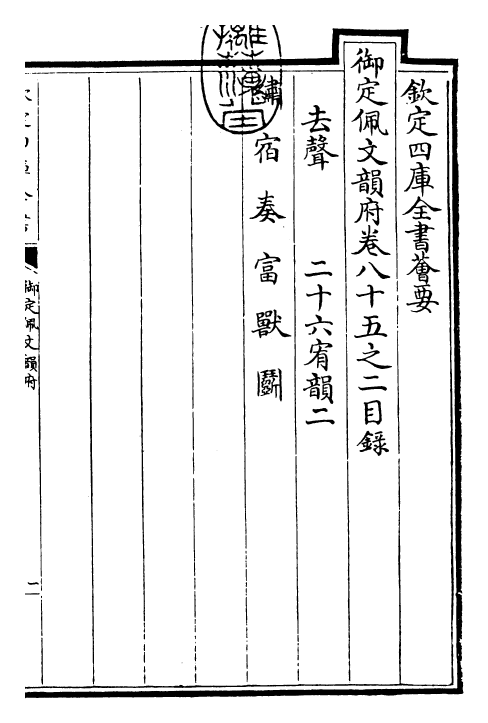 欽定四庫全書薈要
御定佩文韻府卷八十五之二目錄
去聲 二十六宥韻二
繡宿奏富獸鬭
御定佩文韻府
二